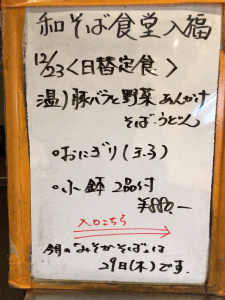 和そば食堂入福
12/23<日替定食>
温)豚バラと野菜あんかけ
そば・うどん
◦おにぎり(ふろ)
◦小鉢2品付
¥880.―
入口こちら
今月の「みそかそば」は
29日(木)です.